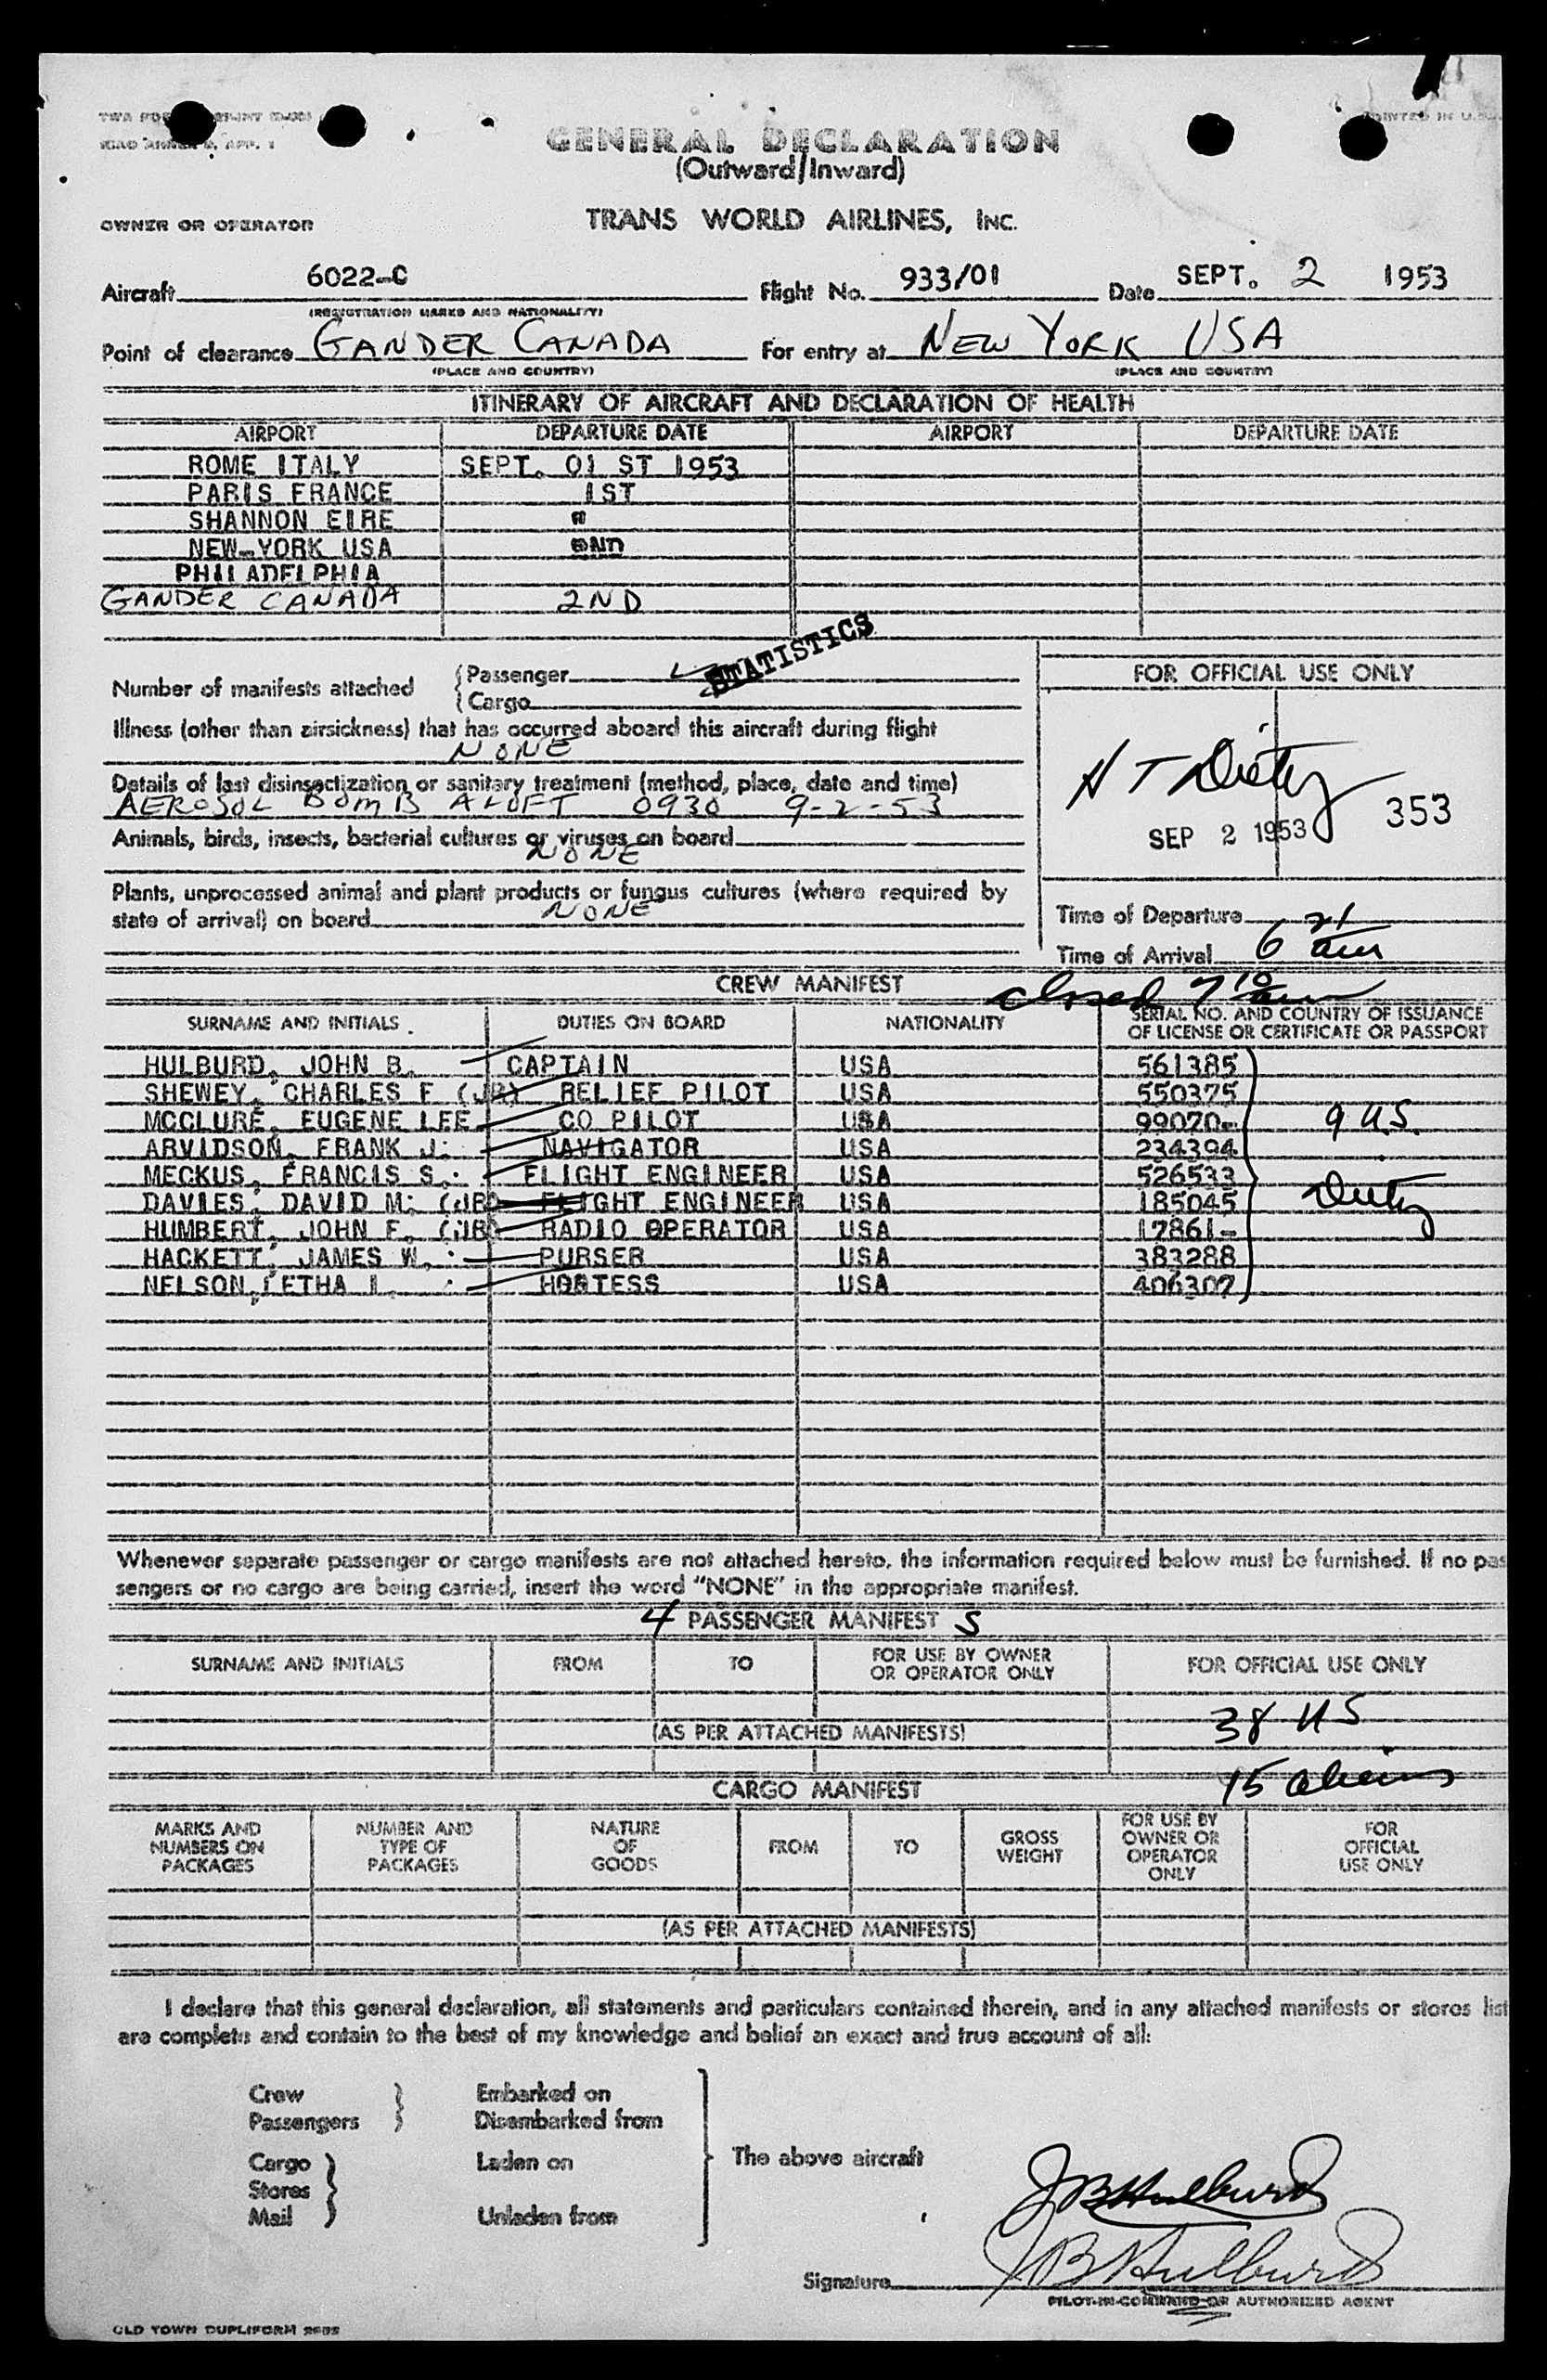 GENERAL DECLARATION
(Outward/Inward)
OWNER OR OPERATOR TRANS WORLD AIRLINES, INC.
Aircraft 6022-C Flight No. 933/01 Date SEPT. 2 1953
(REGISTRATION MARKS AND NATIONALITY)
Point of clearance GANDER CANADA For entry at NEW YORK USA
(PLACE AND COUNTRY) (PLACE AND COUNTRY)
ITINERARY OF AIRCRAFT AND DECLARATION OF HEALTH
AIRPORT DEPARTURE DATE AIRPORT DEPARTURE DATE
ROME ITALY SEPT. 01 ST 1953
PARIS FRANCE 1ST
SHANNON EIRE "
NEW-YORK USA
PHILADELPHIA
GANDER CANADA 2ND
STATISTICS
Number of manifests attached { Passenger
{ Cargo
FOR OFFICIAL USE ONLY
Illness (other than airsickness) that has occurred aboard this aircraft during flight
NONE
Details of last disinsectization or sanitary treatment (method, place, date and time)
AEROSOL BOMB ALOFT 0930 9-2-53
H T Dietz
SEP 2 1953 353
Animals, birds, insects, bacterial cultures or viruses on board
NONE
Plants, unprocessed animal and plant products or fungus cultures (where required by
state of arrival) on board NONE
Time of Departure
Time of Arrival 6 21 am
closed 7 10 am
CREW MANIFEST
SURNAME AND INITIALS. DUTIES ON BOARD NATIONALITY SERIAL NO. AND COUNTRY OF ISSUANCE
OF LICENSE OR CERTIFICATE OR PASSPORT
HULBURD, JOHN B. CAPTAIN USA 561385
SHEWEY, CHARLES F (JR) RELIEF PILOT USA 550375
MCCLURE, EUGENE LEE CO PILOT USA 99070- 9 U.S.
ARVIDSON, FRANK J. NAVIGATOR USA 234394
MECKUS, FRANCIS S. FLIGHT ENGINEER USA 526533
DAVIES, DAVID M. (JR) FLIGHT ENGINEER USA 185045 Dietz
HUMBERT, JOHN F. (JR) RADIO OPERATOR USA 17861-
HACKETT, JAMES W. PURSER USA 383288
NELSON, LETHA L. HOSTESS USA 406307
Whenever separate passenger or cargo manifests are not attached hereto, the information required below must be furnished. If no pas
sengers or no cargo are being carried, insert the word "NONE" in the appropriate manifest.
4 PASSENGER MANIFEST S
SURNAME AND INITIALS FROM TO FOR USE BY OWNER
OR OPERATOR ONLY FOR OFFICIAL USE ONLY
38 US
(AS PER ATTACHED MANIFESTS)
15 aliens
CARGO MANIFEST
MARKS AND
NUMBERS ON
PACKAGES NUMBER AND
TYPE OF
PACKAGES NATURE
OF
GOODS FROM TO GROSS
WEIGHT FOR USE BY
OWNER OR
OPERATOR
ONLY FOR
OFFICIAL
USE ONLY
(AS PER ATTACHED MANIFESTS)
I declare that this general declaration, all statements and particulars contained therein, and in any attached manifests or stores list
are complete and contain to the best of my knowledge and belief an exact and true account of all:
Crew Embarked on
Passengers Disembarked from
Cargo Laden on The above aircraft
Stores
Mail Unladen from
JB Hulburd
Signature JB Hulburd
PILOT-IN-COMMAND OR AUTHORIZED AGENT
OLD TOWN DUPLIFORM